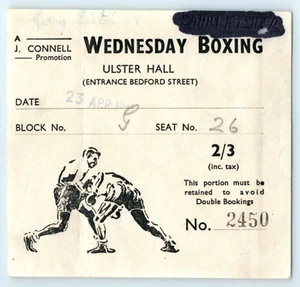 A
J. CONNELL
Promotion
WEDNESDAY BOXING
ULSTER HALL
(ENTRANCE BEDFORD STREET)
DATE 23 APR
BLOCK No. G SEAT No. 26
2/3
(inc. tax)
This portion must be
retained to avoid
Double Bookings
No. 2450